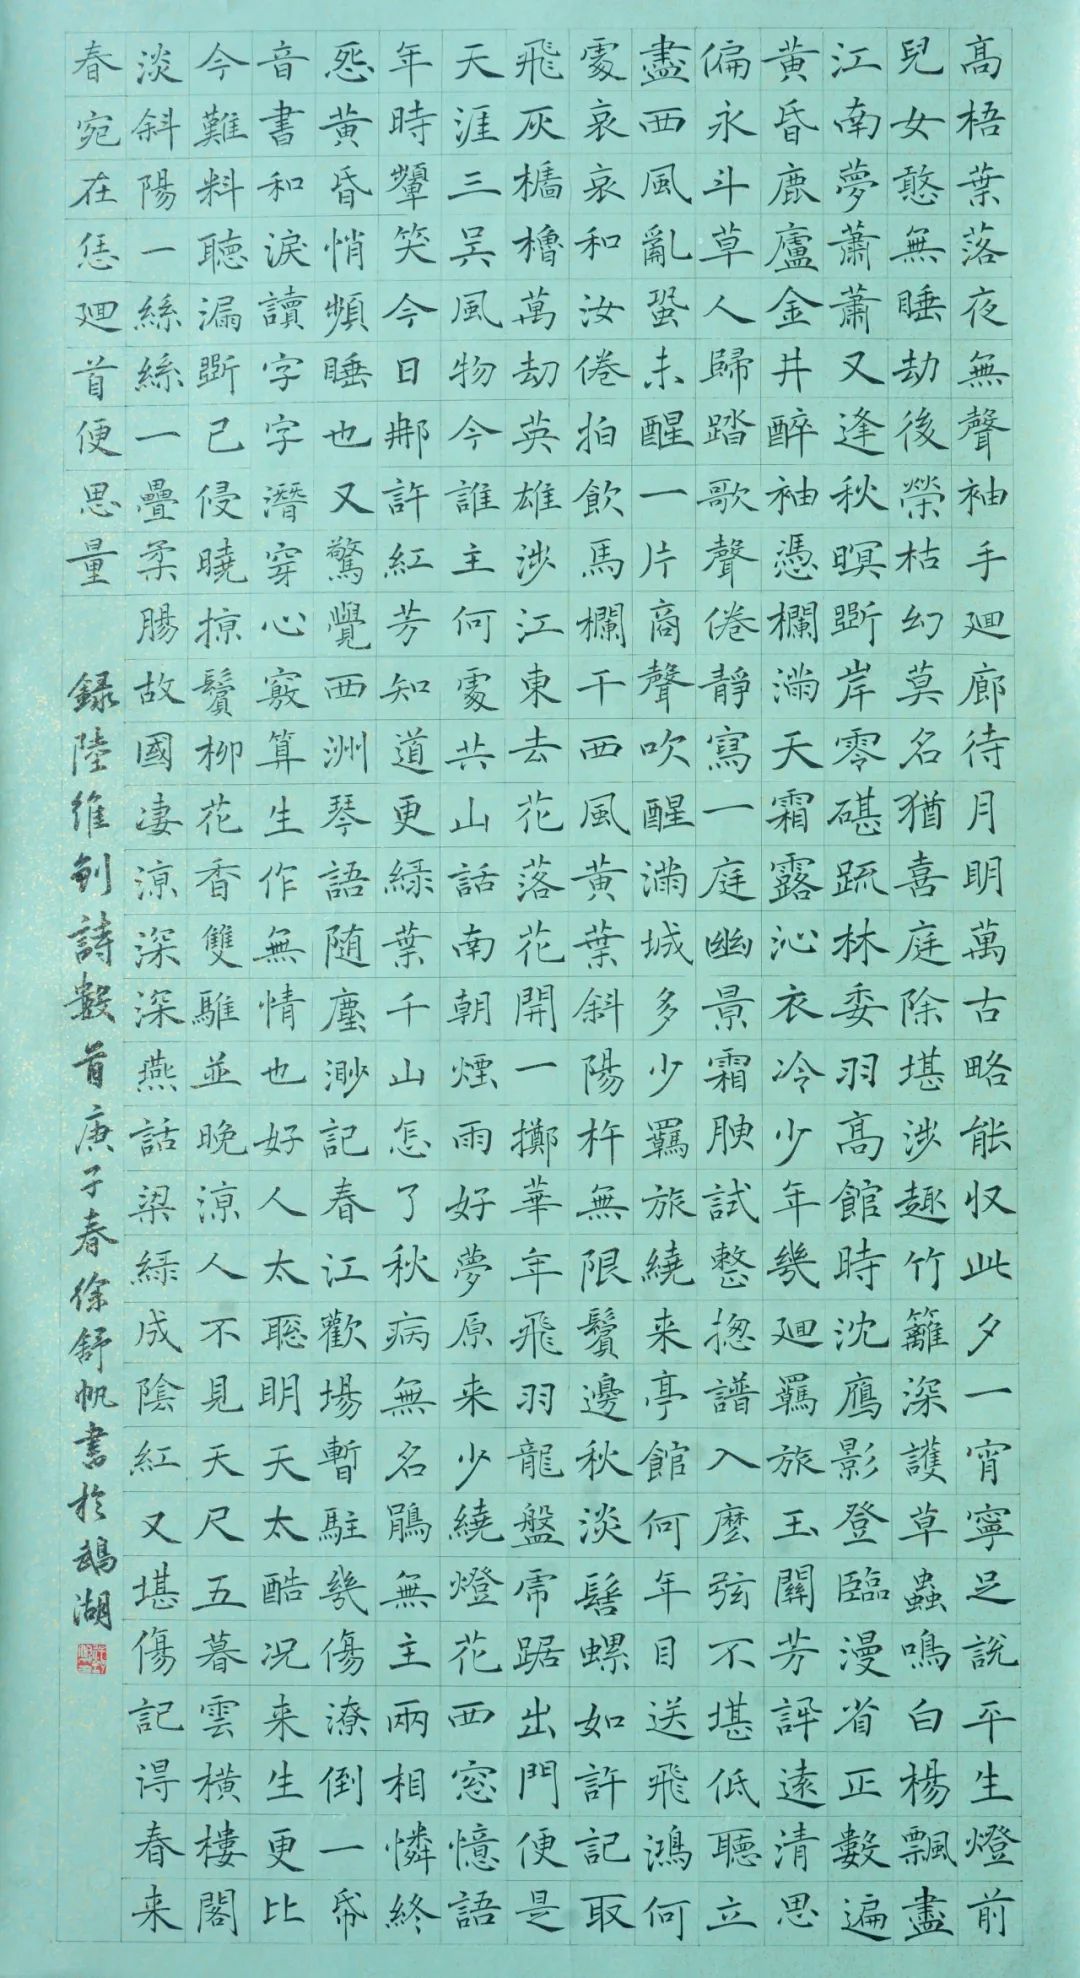 高梧葉落夜無聲袖手廻廊待月明萬古略能収此夕一宵寧足說平生燈前
兒女憨無睡劫後榮枯幻莫名猶喜庭除堪涉趣竹籬深護草蟲鳴白楊飄盡
江南夢蕭蕭又逢秋暝斷岸零碪疏林委羽高館時沈鴈影登臨漫省正數遍
黃昏鹿盧金井醉袖憑欄滿天霜露沁衣冷少年幾廻羈旅玉關芳訊遠清思
偏永斗草人歸踏歌聲倦靜寫一庭幽景霜腴試整揔譜入麼弦不堪低聽立
盡西風亂蛩未醒一片商聲吹醒滿城多少羈旅繞来亭館何年目送飛鴻何
處哀哀和汝倦拍飲馬欄干西風黃葉斜陽杵無限鬢邊秋淡髻螺如許記取
飛灰檣櫓萬劫英雄涉江東去花落花開一擲華年飛羽龍盤虎踞出門便是
天涯三吴風物今誰主何處共山話南朝煙雨好夢原来少繞燈花西窓憶語
年時顰笑今日那許紅芳知道更緑葉千山怎了秋病無名鵑無主兩相憐終
怨黃昏悄頻睡也又驚覺西洲琴語随塵渺記春江歡場暫駐幾傷潦倒一帋
音書和淚讀字字潛穿心竅算生作無情也好人太聡明天太酷况来生更比
今難料聽漏斷已侵曉掠鬢柳花香雙騅並晚涼人不見天尺五暮雲橫樓閣
淡斜陽一絲絲一疊柔腸故國凄涼深深燕話梁緑成陰紅又堪傷記得春来
春宛在恁廻首便思量
録陸維釗詩數首庚子春徐舒帆書於鵡湖